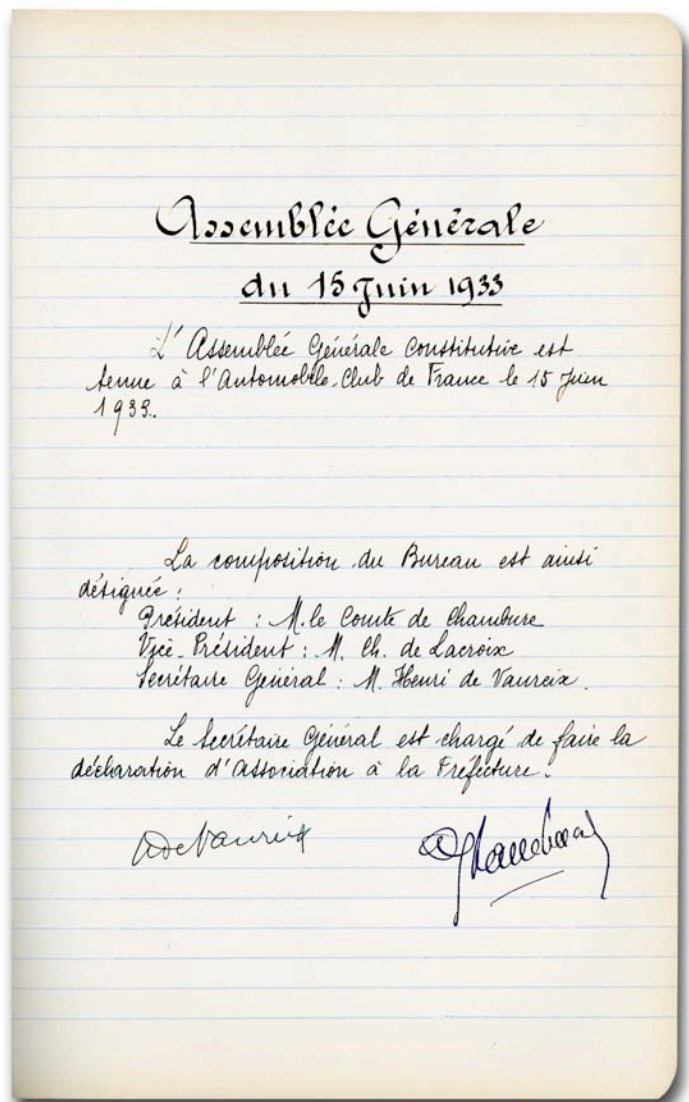 Assemblée Générale
du 15 Juin 1933
L'Assemblée Générale Constitutive est
tenue à l'Automobile-Club de France le 15 Juin
1933.
La composition du Bureau est ainsi
désignée :
Président : M. le Comte de Chambure
Vice-Président : M. Ch. de Lacroix
Secrétaire Général : M. Henri de Vaureix.
Le Secrétaire Général est chargé de faire la
déclaration d'Association à la Préfecture.